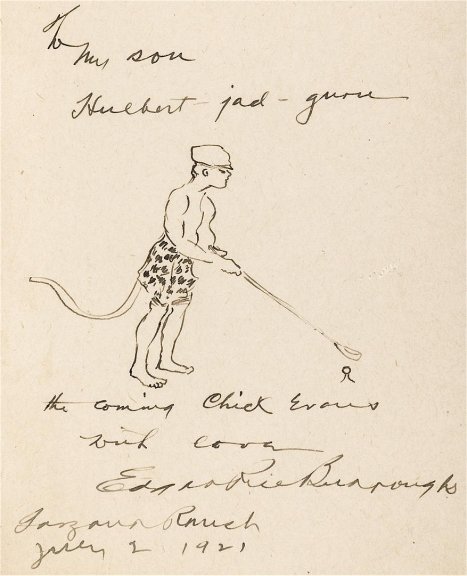 To
My son
Hulbert - jad - guru
the coming Chick Evans
with love
Edgar Rice Burroughs
Tarzana Ranch
July 2 1921